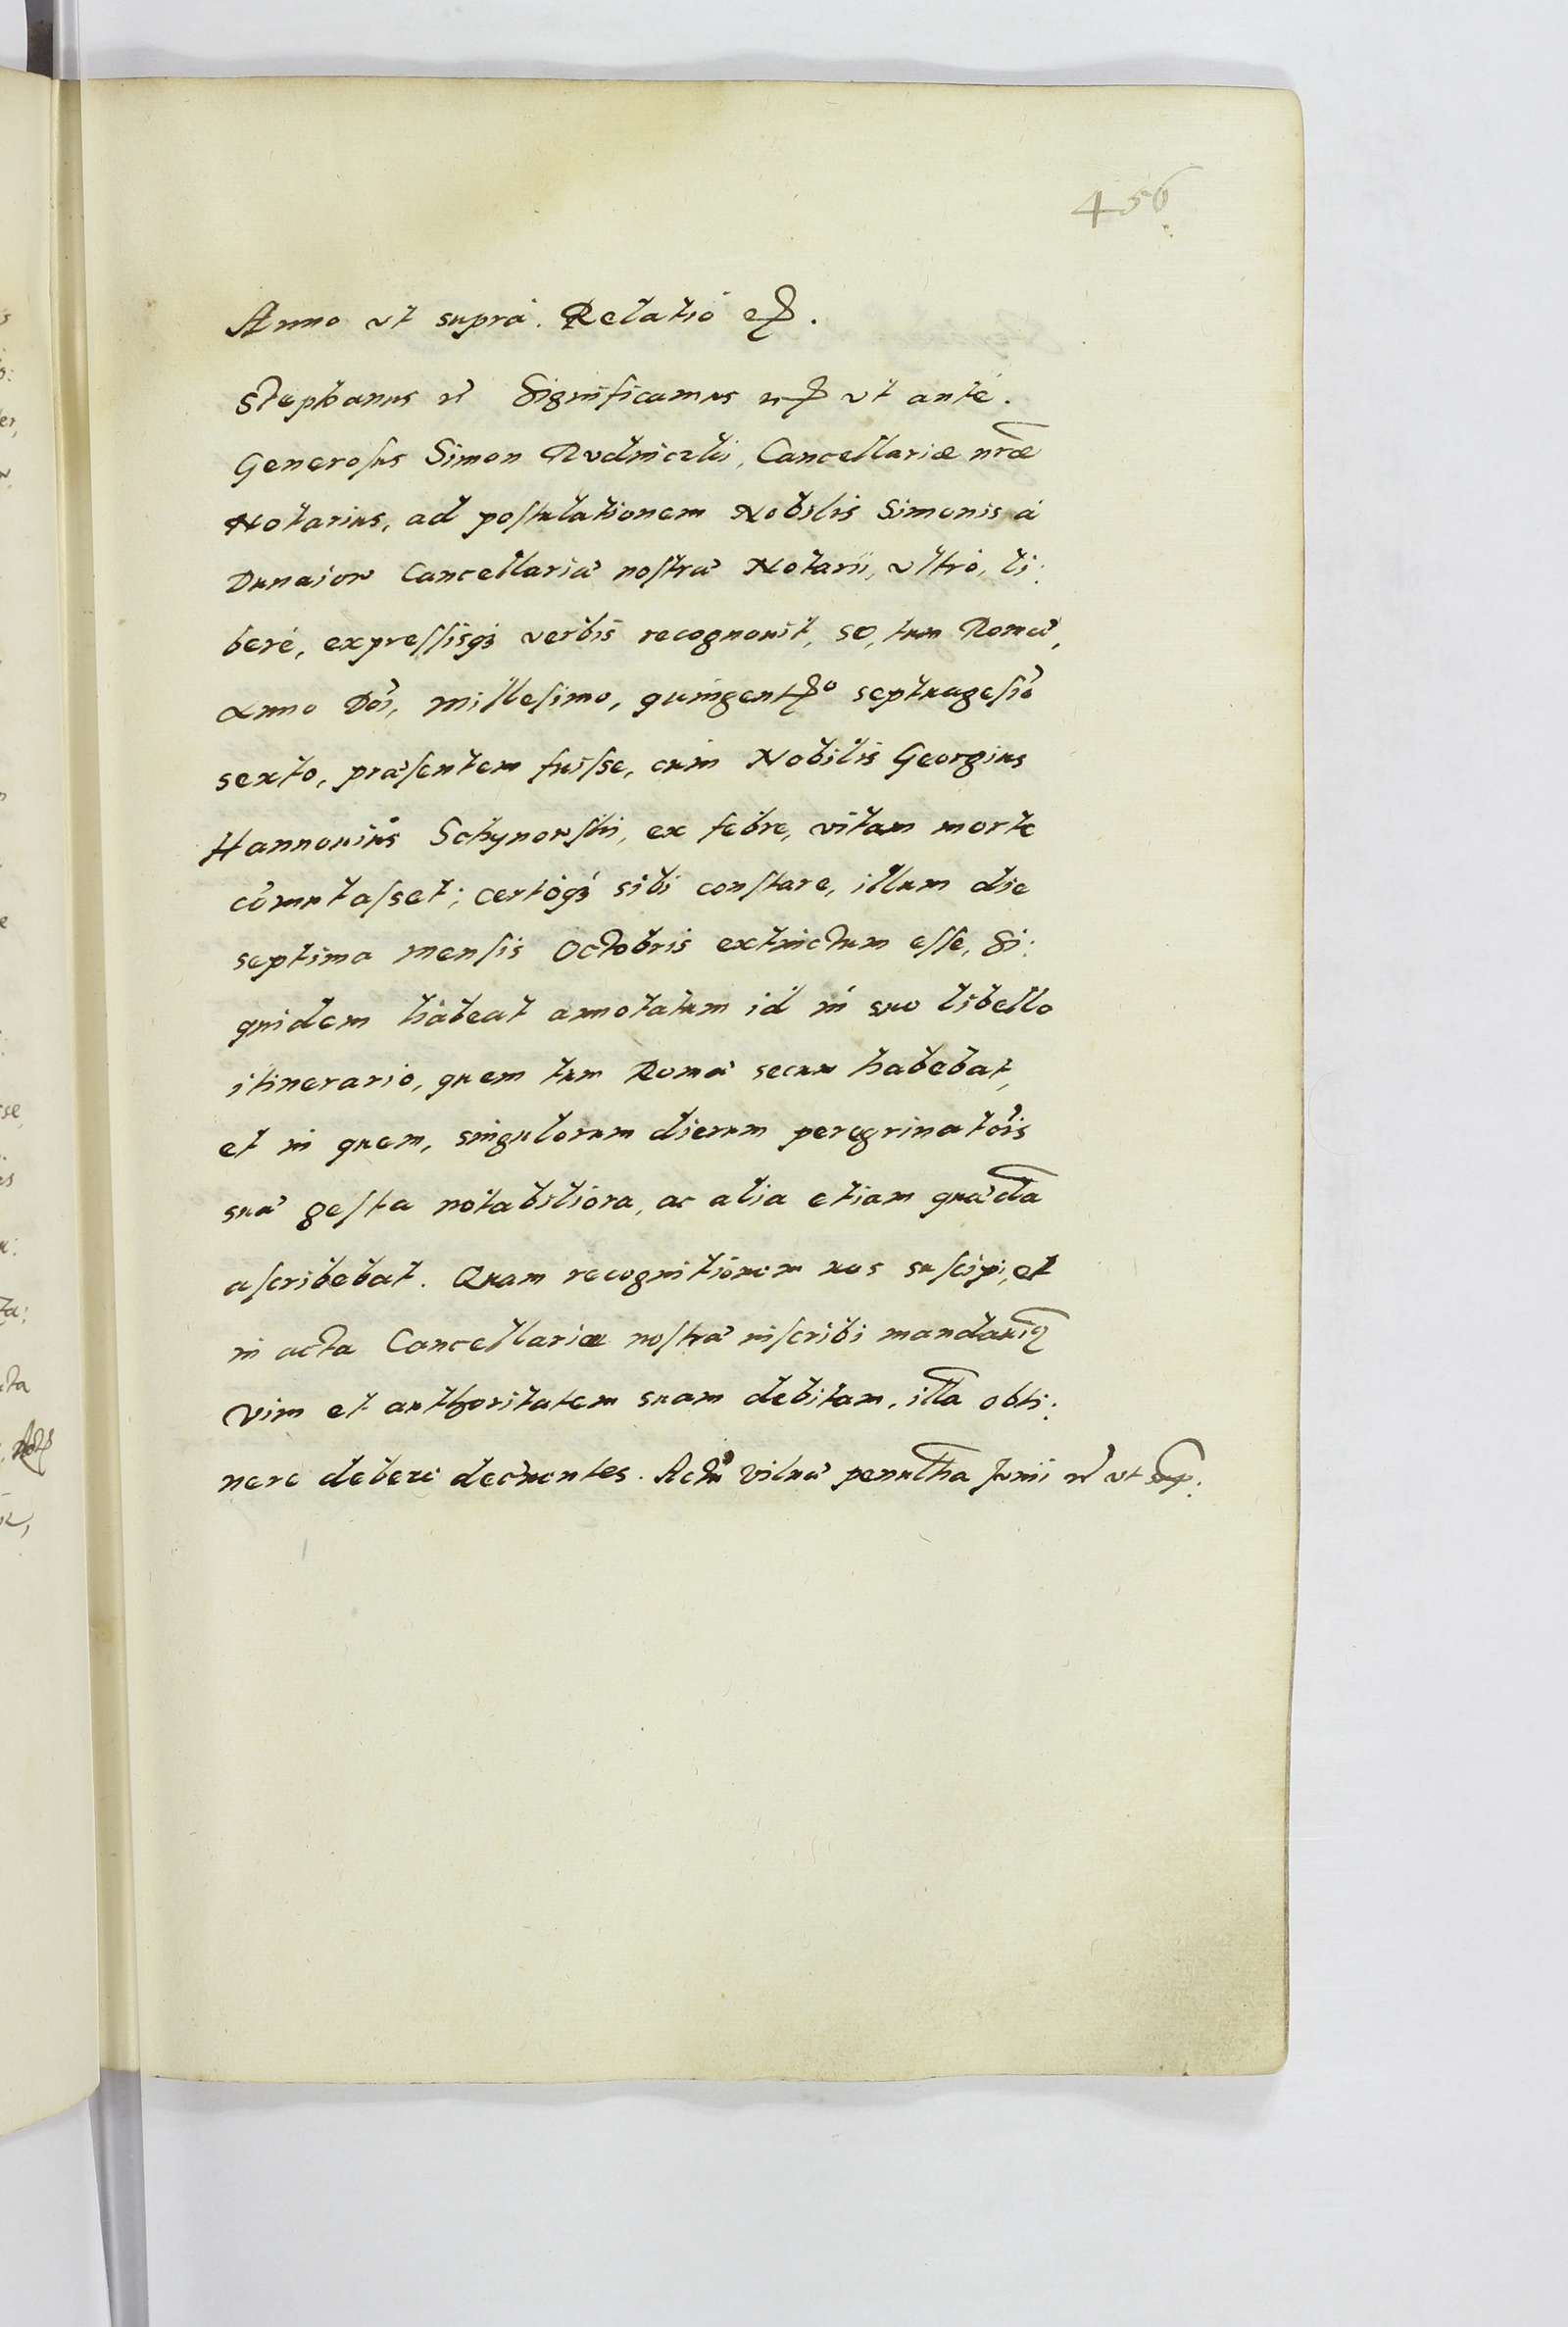 456.
Anno ut supra. Relatio etc.
Stephanus etc Significamus etc ut ante.
Generosus Simon Rudniczki, Cancellariæ nræ
Notarius, ad postulationem Nobilis Simonis à
Dunaiow Cancellariæ nostræ Notarii, ultrò, li:
berè, expressisq3 verbis recognouit, se, tum Romæ,
Anno Doi, millesimo, quingentmo septuagesio
sexto, præsentem fuisse, cum Nobilis Georgius
Hannonius Schynowski, ex febre, vitam morte
cõmutasset; certoq3 sibi constare, illum die
septima mensis Octobris extinctum esse, Si:
quidem habeat annotatum id in suo libello
itinerario, quem tum Romæ secum habebat,
et in quem, singulorum dierum peregrinatois
suæ gesta notabiliora, ac alia etiam quædã
ascribebat. Quam recognitionem nos suscipi, et
in acta Cancellariæ nostræ inscribi mandauiq
vim et authoritatem suam debitam, illã obti:
nere debere decernentes. Actũ Vilnæ penultĩa Junii etc ut sup: